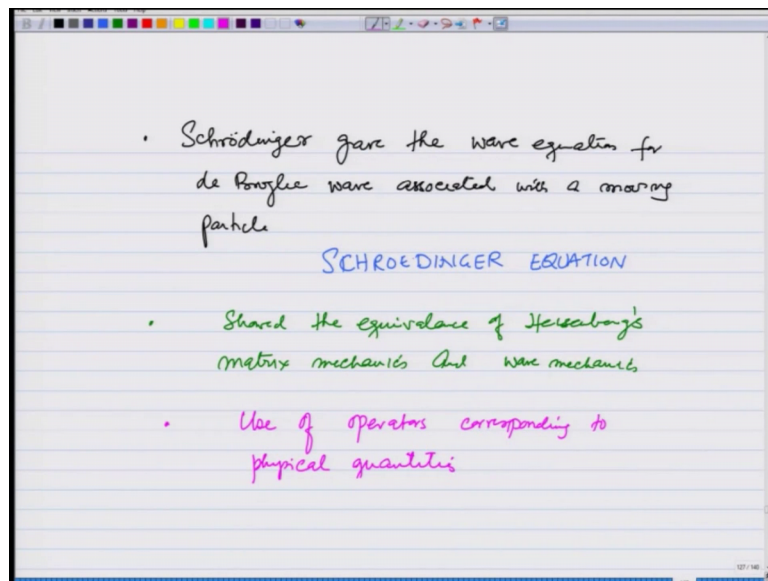 • Schrödinger gave the wave equation for
de Broglie wave associated with a moving
particle
SCHROEDINGER EQUATION
• Showed the equivalence of Heisenberg's
matrix mechanics and wave mechanics
• Use of operators corresponding to
physical quantities
127 / 140